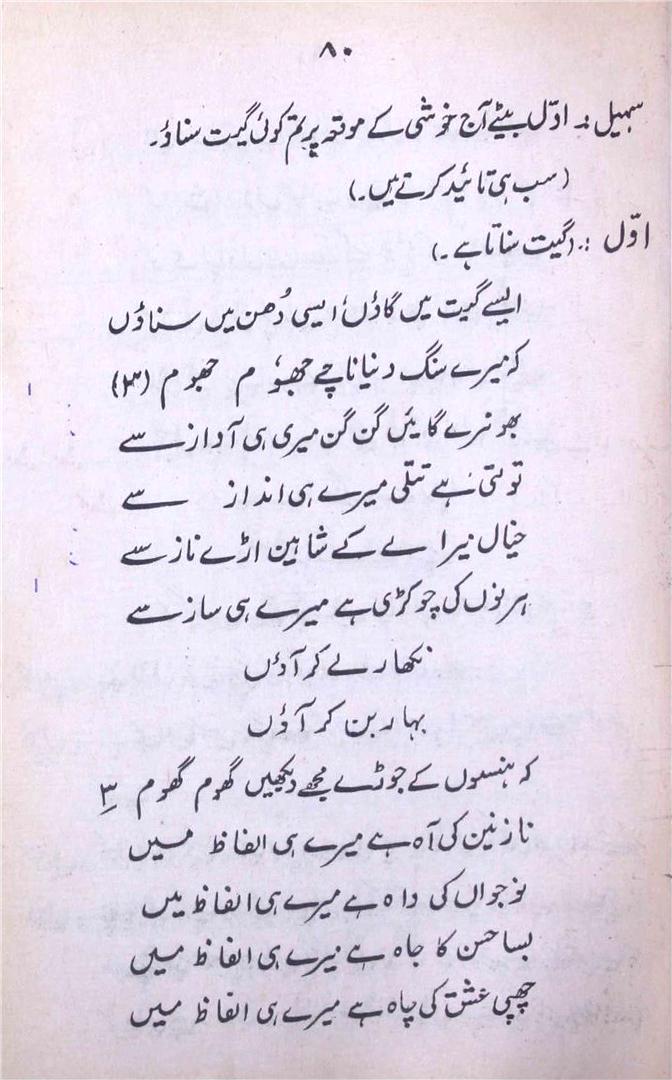 ۸۰
سہیل :۔ اوّل بیٹے آج خوشی کے موقعہ پر تم کوئی گیت سناؤ۔
(سب ہی تائید کرتے ہیں۔)
اوّل :۔ (گیت سناتا ہے۔)
ایسے گیت میں گاؤں، ایسی دُھن میں سناؤں
کہ میرے سنگ دنیا ناچے جھوٗم جھوم (۳)
بھونرے گایئں گن گن میری ہی آواز سے
تولتی ہے تتلی میرے ہی انداز سے
خیال میرا لے کے شاہین اڑے ناز سے
ہرنوں کی چوکڑی ہے میرے ہی ساز سے
نکھار لے کر آؤں
بہار بن کر آؤں
کہ ہنسوں کے جوڑے مجھے دیکھیں گھوم گھوم ۳
نازنین کی آہ ہے میرے ہی الفاظ میں
نوجواں کی واہ ہے میرے ہی الفاظ میں
بسا حسن کا جاہ ہے میرے ہی الفاظ میں
چھپی عشق کی چاہ ہے میرے ہی الفاظ میں